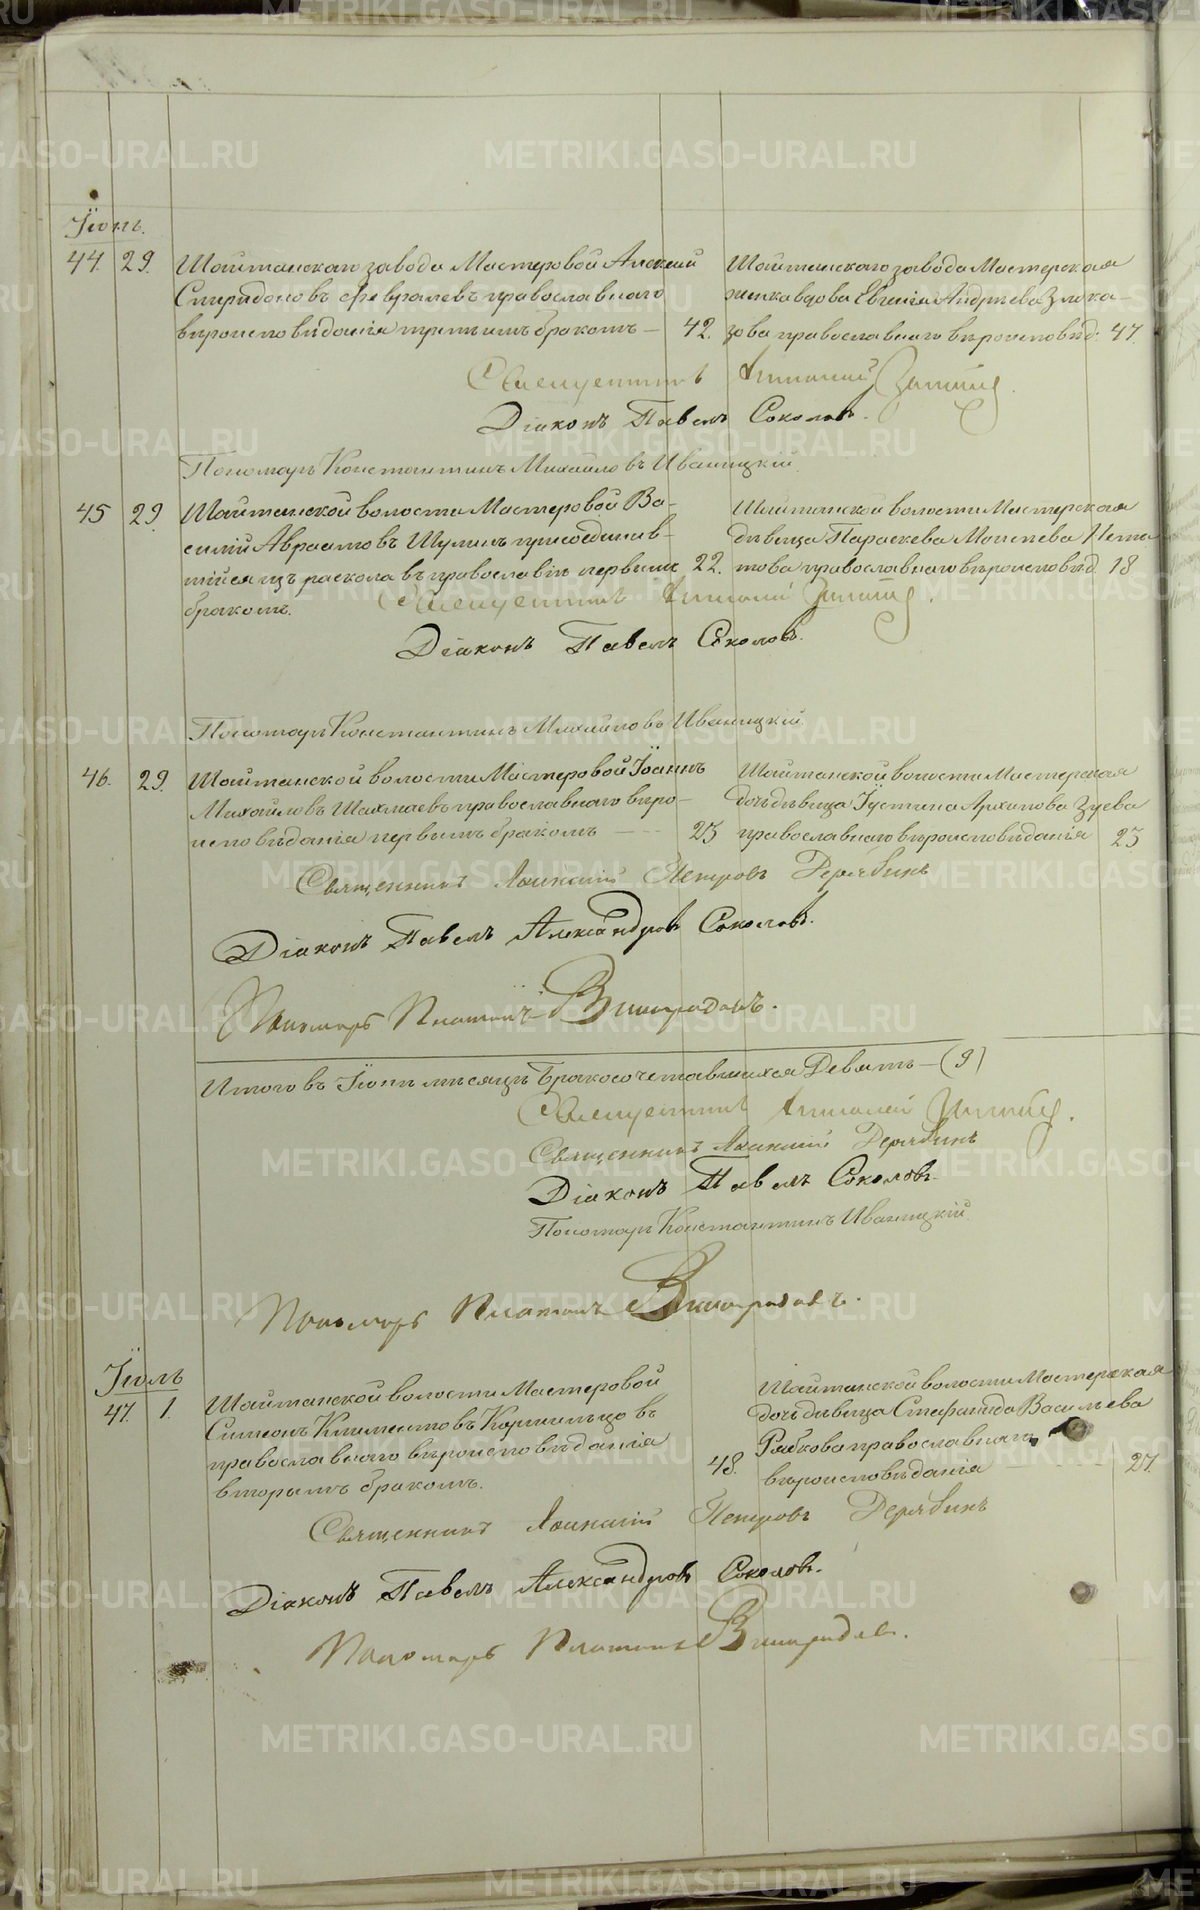 Іюнь.
44. 29. Шайтанскаго завода Мастеровой Алексий
Спиридоновъ Февралевъ православнаго
вѣроисповѣданія третьимъ бракомъ — 42.
Шайтанскаго завода Мастерская
женка вдова Евгенія Андреева Злока-
зова православнаго вѣроисповѣд. 47.
Священникъ
Діаконъ Павелъ Соколовъ.
Пономарь Константинъ Михайловъ Иваницкій.
45 29. Шайтанской волости Мастеровой Ва-
силій Авраамовъ Шулинъ присоединив-
шійся изъ раскола въ православіе первымъ 22.
бракомъ.
Шайтанской волости Мастерская
дѣвица Параскева Моисеева
православнаго вѣроисповѣд. 18
Священникъ
Діаконъ Павелъ Соколовъ.
Пономарь Константинъ Михайловъ Иваницкій.
46. 29. Шайтанской волости Мастеровой Іоаннъ
Михайловъ Шахмаевъ православнаго вѣро-
исповѣданія первымъ бракомъ — 23
Шайтанской волости Мастерская
дочь дѣвица Іустина Архипова Зуева
православнаго вѣроисповѣданія 23
Священникъ Петровъ Дерябинъ
Діаконъ Павелъ Александровъ Соколовъ.
Пономарь Платонъ Виноградовъ.
Итого въ Іюнѣ мѣсяцѣ Бракосочетавшихся Девять — (9)
Священникъ
Священникъ Дерябинъ
Діаконъ Павелъ Соколовъ.
Пономарь Константинъ Иваницкій.
Пономарь Платонъ Виноградовъ.
Іюль
47. 1. Шайтанской волости Мастеровой
Симеонъ Климентовъ Кормильцовъ
православнаго вѣроисповѣданія 48.
вторымъ бракомъ.
Шайтанской волости Мастерская
дочь дѣвица Стефанида Васильева
Рябкова православнаго
вѣроисповѣданія 27.
Священникъ Петровъ Дерябинъ
Діаконъ Павелъ Александровъ Соколовъ.
Пономарь Платонъ Виноградовъ.
METRIKI.GASO-URAL.RU